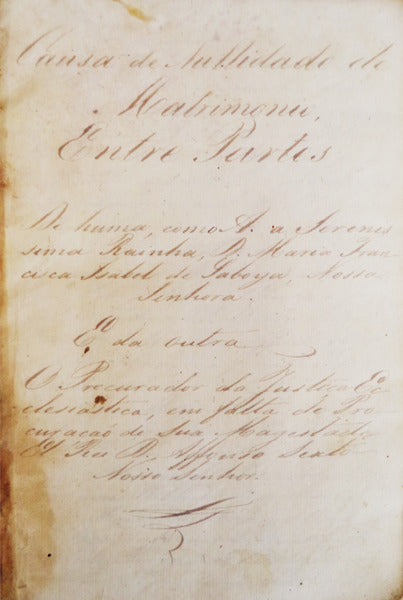 Causa de Nullidade do
Matrimonio,
Entre Partes
De huma, como A. a Serenis
sima Rainha, D. Maria Fran-
cisca Isabel de Saboya, Nossa
Senhora.
E da outra
O Procurador da Justiça Ec
clesiastica, em falta de Pro
curaçaõ de Sua Magestade
El Rei D. Affonso Sexto
Nosso Senhor.